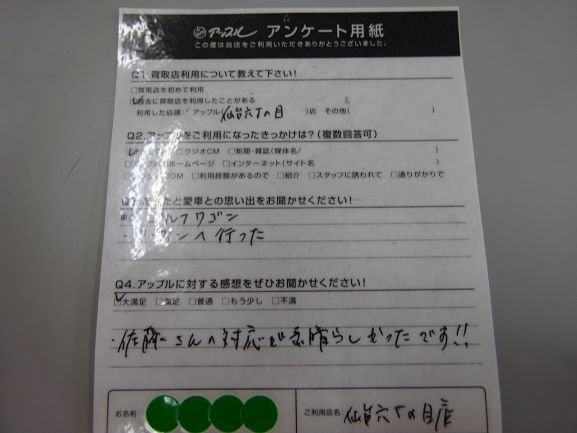 アップル アンケート用紙
この度は当店をご利用いただきありがとうございました。
Q1.買取店利用について教えて下さい!
□買取店を初めて利用
過去に買取店を利用したことがある
利用した店舗: アップル 仙台六丁の目 )店 その他( )
Q2.アップルをご利用になったきっかけは?(複数回答可)
□ラジオCM □新聞・雑誌(媒体名/ )
ホームページ □インターネット(サイト名 )
□利用経験があるので □紹介 □スタッフに誘われて □通りがかりで
と愛車との思い出をお聞かせください!
ルフワゴン
へ行った
Q4.アップルに対する感想をぜひお聞かせください!
☑大満足 □満足 □普通 □もう少し □不満
・佐藤さんの対応が素晴らしかったです!!
お名前: ご利用店名: 仙台六丁の目店